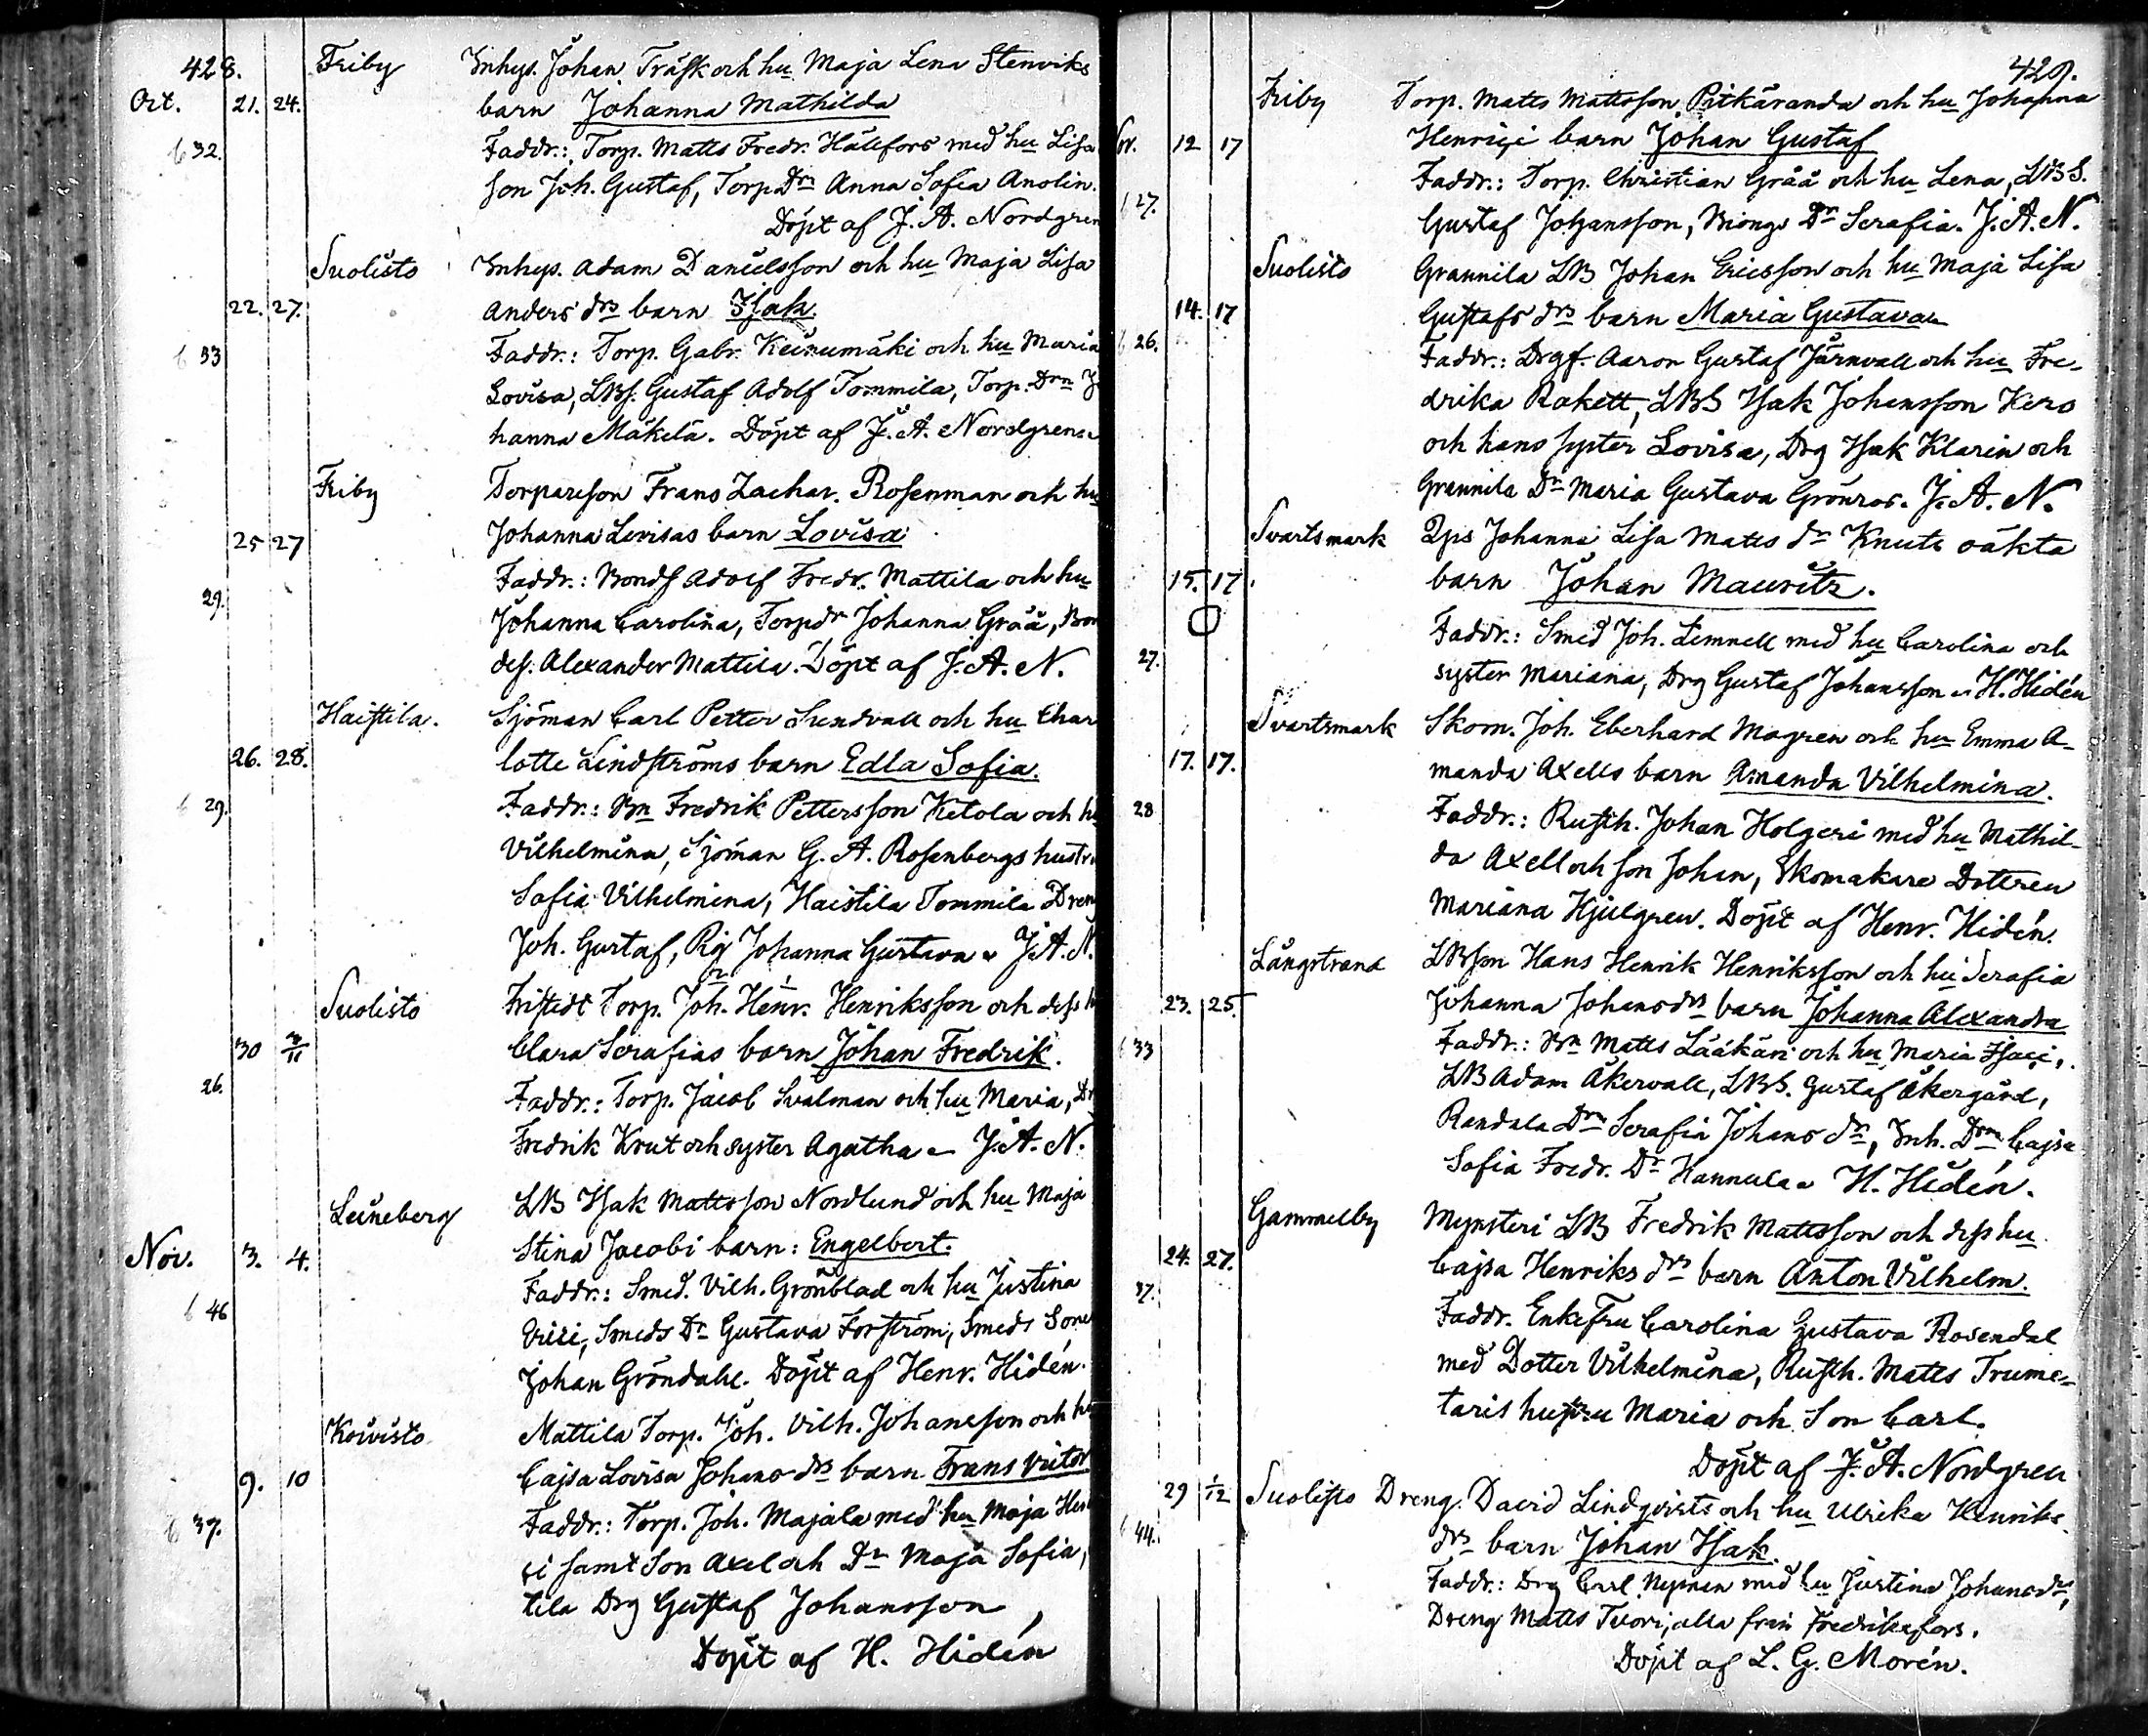 428.
Friby Inhys. Johan Träsk och hu Maja Lena Stenviks
Oct. 21. 24. barn Johanna Mathilda
b 32. Faddr.: Torp. Matts Fredr. Hällfors med hu Lisa
son Joh. Gustaf, Torp Drn Anna Sofia Anolin.
Döpt af J. A. Nordgren
Suolisto Inhys. Adam Danielsson och hu Maja Lisa
22. 27. Anders drs barn Isak
b 33 Faddr.: Torp. Gabr. Keinumäki och hu Maria
Lovisa, LBs. Gustaf Adolf Tommila, Torp. Drn Jo
hanna Mäkelä. Döpt af J. A. Nordgren
Friby Torpareson Frans Zachar. Rosenman och hu
25 27 Johanna Lovisas barn Lovisa
29. Faddr.: Bonds Adolf Fredr. Mattila och hu
Johanna Carolina, Torpdr Johanna Grää, Bon
des. Alexander Mattila. Döpt af J. A. N.
Haistila. Sjöman Carl Petter Sundvall och hu Char
26. 28. lotte Lindströms barn Edla Sofia.
b 29. Faddr.: Bn Fredrik Pettersson Ketola och hu
Vilhelmina, Sjöman G. A. Rosenbergs hustru
Sofia Vilhelmina, Haistila Tommila Dreng
Joh. Gustaf, Pig Johanna Gustava J. A. N.
Suolisto Fristedt Torp. Joh. Henr. Henriksson och dess h
30 3/11 Clara Serafias barn Johan Fredrik.
26. Faddr.: Torp. Jacob Svalman och hu Maria, Dr
Fredrik Krut och syster Agatha J. A. N.
Leineberg LB Isak Mattsson Nordlund och hu Maja
Nov. 3. 4. Stina Jacobi barn: Engelbert.
b 46 Faddr.: Smed. Vilh. Grönblad och hu Justina
Smeds Dr Gustava Forström, Smeds Sone
Johan Gröndahl. Döpt af Henr. Hidén.
Koivisto Mattila Torp. Joh. Vilh. Johansson och hu
9. 10 Cajsa Lovisa Johans drs barn Frans Victor
b 37. Faddr.: Torp. Joh. Majala med hu Maja Hen
ci samt Son Axel och Dr Maja Sofia,
tila Drg Gustaf Johansson
Döpt af H. Hidén
429.
Friby Torp. Matts Mattsson Pitkäranda och hu Johanna
Nov. 12 17 Henrici barn Johan Gustaf
Faddr.: Torp. Christian Grää och hu Lena, LBS.
b 27. Gustaf Johansson, Dr Serafia. J. A. N.
Suolisto Grannila LB Johan Ericsson och hu Maja Lisa
14. 17 Gustafs drs barn Maria Gustava
b 26. Faddr.: Drgf. Aaron Gustaf Järnvall och hu Fre-
drika Rakett, LBS Isak Johansson Kero
och hans syster Lovisa, Drg Isak Klarin och
Grannila Dr Maria Gustava Grönros. J. A. N.
Svartsmark Qps Johanna Lisa Matts dr Knuts oäkta
15. 17 barn Johan Mauritz.
Faddr.: Smed Joh. Limnell med hu Carolina och
27. syster Mariana, Drg Gustaf Johansson H. Hidén
Svartsmark Skom. Joh. Eberhard Magren och hu Emma A-
17. 17. manda Axells barn Amanda Vilhelmina.
28 Faddr.: Rusth. Johan Holgeri med hu Mathil-
da Axell och son Johan, Skomakare Dottren
Mariana Hjulgren. Döpt af Henr. Hidén.
Långstrand LBson Hans Henrik Henriksson och hu Serafia
23. 25. Johanna Johansdrs barn Johanna Alexandra
b 33 Faddr.: Bn Matts Lääkäri och hu Maria Isaci,
LB Adam Åkervall, LBS. Gustaf Åkergård,
Randala Drn Serafia Johans dr, Inh. Drn Cajsa
Sofia Fredr. Dr Hannula H. Hidén.
Gammelby Mynsteri LB Fredrik Mattsson och dess hu
24. 27. Cajsa Henriks drs barn Anton Vilhelm.
37. Faddr. Enkefru Carolina Gustava Rosendal
med Dotter Vilhelmina, Rusth. Matts Trume-
taris hustru Maria och Son Carl.
Döpt af J. A. Nordgren
29 1/12 Suolisto Dreng. David Lindqvists och hu Ulrika Henriks
b 44. drs barn Johan Isak.
Faddr.: Drg Carl Nyman med hu Justina Johansdr,
Dreng Matts Tuori, alla från Fredriksfors.
Döpt af L. G. Morén.